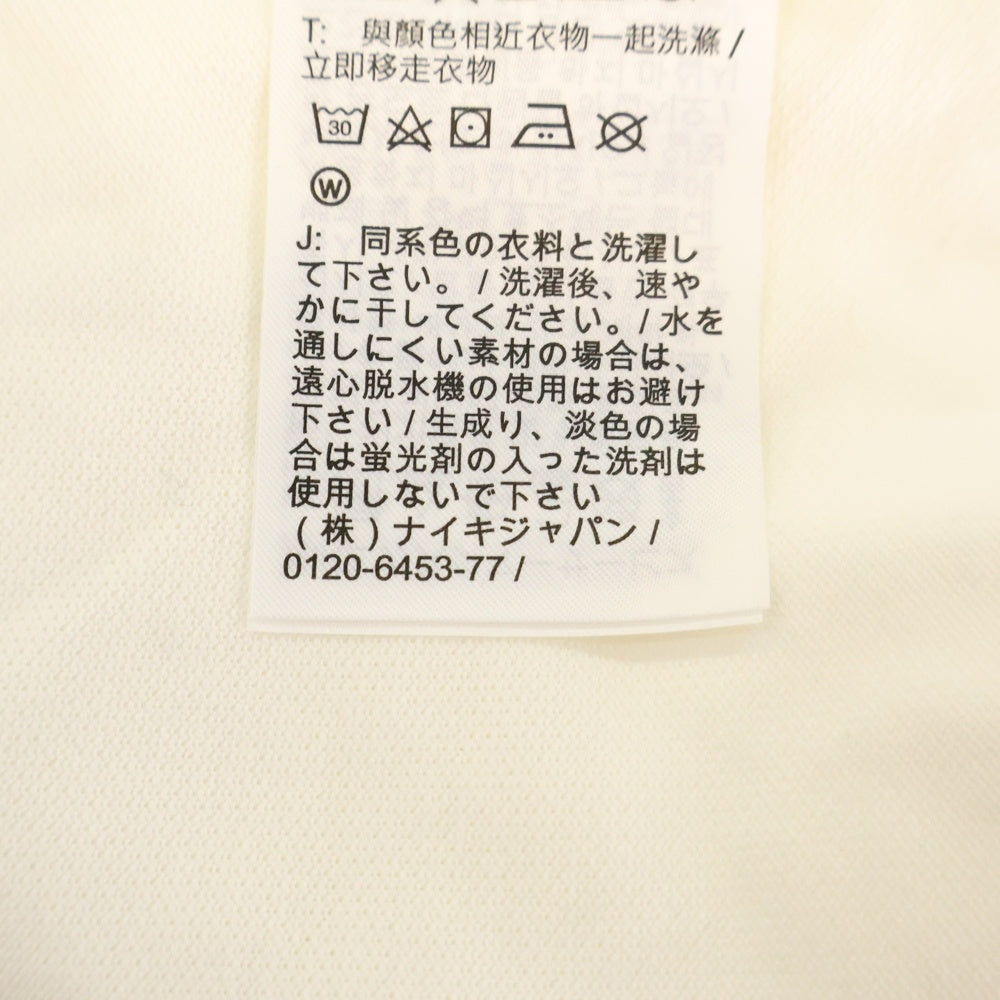 T: 與顏色相近衣物一起洗滌 /
立即移走衣物
30
W
J: 同系色の衣料と洗濯し
て下さい。 / 洗濯後、速や
かに干してください。/ 水を
通しにくい素材の場合は、
遠心脱水機の使用はお避け
下さい / 生成り、淡色の場
合は蛍光剤の入った洗剤は
使用しないで下さい
(株)ナイキジャパン /
0120-6453-77 /